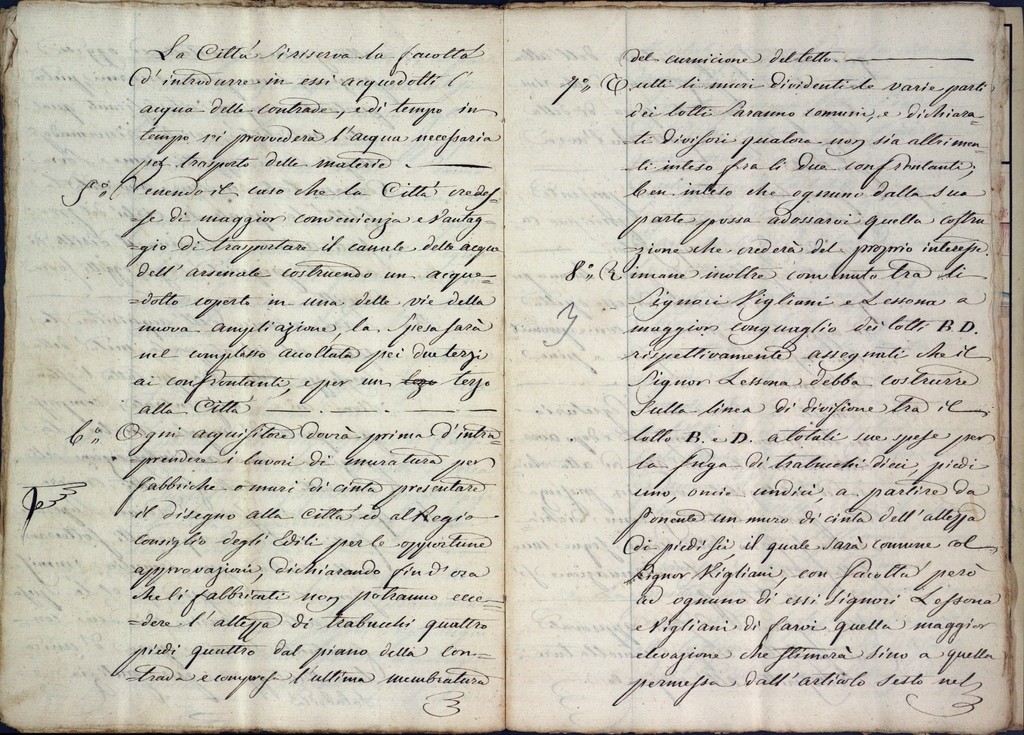 La Città si riserva la facoltà
d'introdurre in essi acquedotti l'
acqua delle contrade, e di tempo in
tempo vi provvederà l'acqua necessaria
pel trasporto delle materie.
5.° Venendo il caso che la Città credes-
se di maggior convenienza e vantag-
=gio di trasportare il canale delle acque
dell'arsenale costruendo un acque-
=dotto coperto in una delle vie della
nuova ampliazione, la spesa sarà
nel complesso accollata pei due terzi
ai confrontanti, e per un terzo
alla Città
6.° Ogni acquisitore dovrà prima d'intra-
=prendere i lavori di muratura per
fabbriche o muri di cinta presentare
il disegno alla Città ed al Regio
Consiglio degli Edili per le opportune
approvazioni, dichiarando fin d'ora
che li fabbricati non potranno ecce-
=dere l'altezza di trabucchi quattro
piedi quattro dal piano della con-
=trada e compresa l'ultima membratura
del cornicione del tetto.
7.° Tutti li muri dividenti le varie parti
dei lotti saranno comuni, e dichiara-
ti divisori qualora non sia altrimen-
ti inteso fra li due confrontanti,
ben inteso che ognuni dalla sua
parte possa adossarvi quella costru-
=zione che crederà del proprio interesse.
8.° Rimane inoltre convenuto tra li
3
Signori Vigliani e Lessona a
maggior conguaglio dei lotti B. D.
rispettivamente assegnati che il
Signor Lessona debba costrurre
sulla linea di divisione tra il
lotto B. e D. a totali sue spese per
la fuga di trabucchi dieci, piedi
uno, oncie undici, a partire da
ponente un muro di cinta dell'altezza
di piedi sei, il quale sarà comune col
Signor Vigliani, con facoltà però
ad ognuno di essi Signori Lessona
e Vigliani di farvi quella maggior
elevazione che stimerà sino a quella
permessa dall'articolo sesto nel